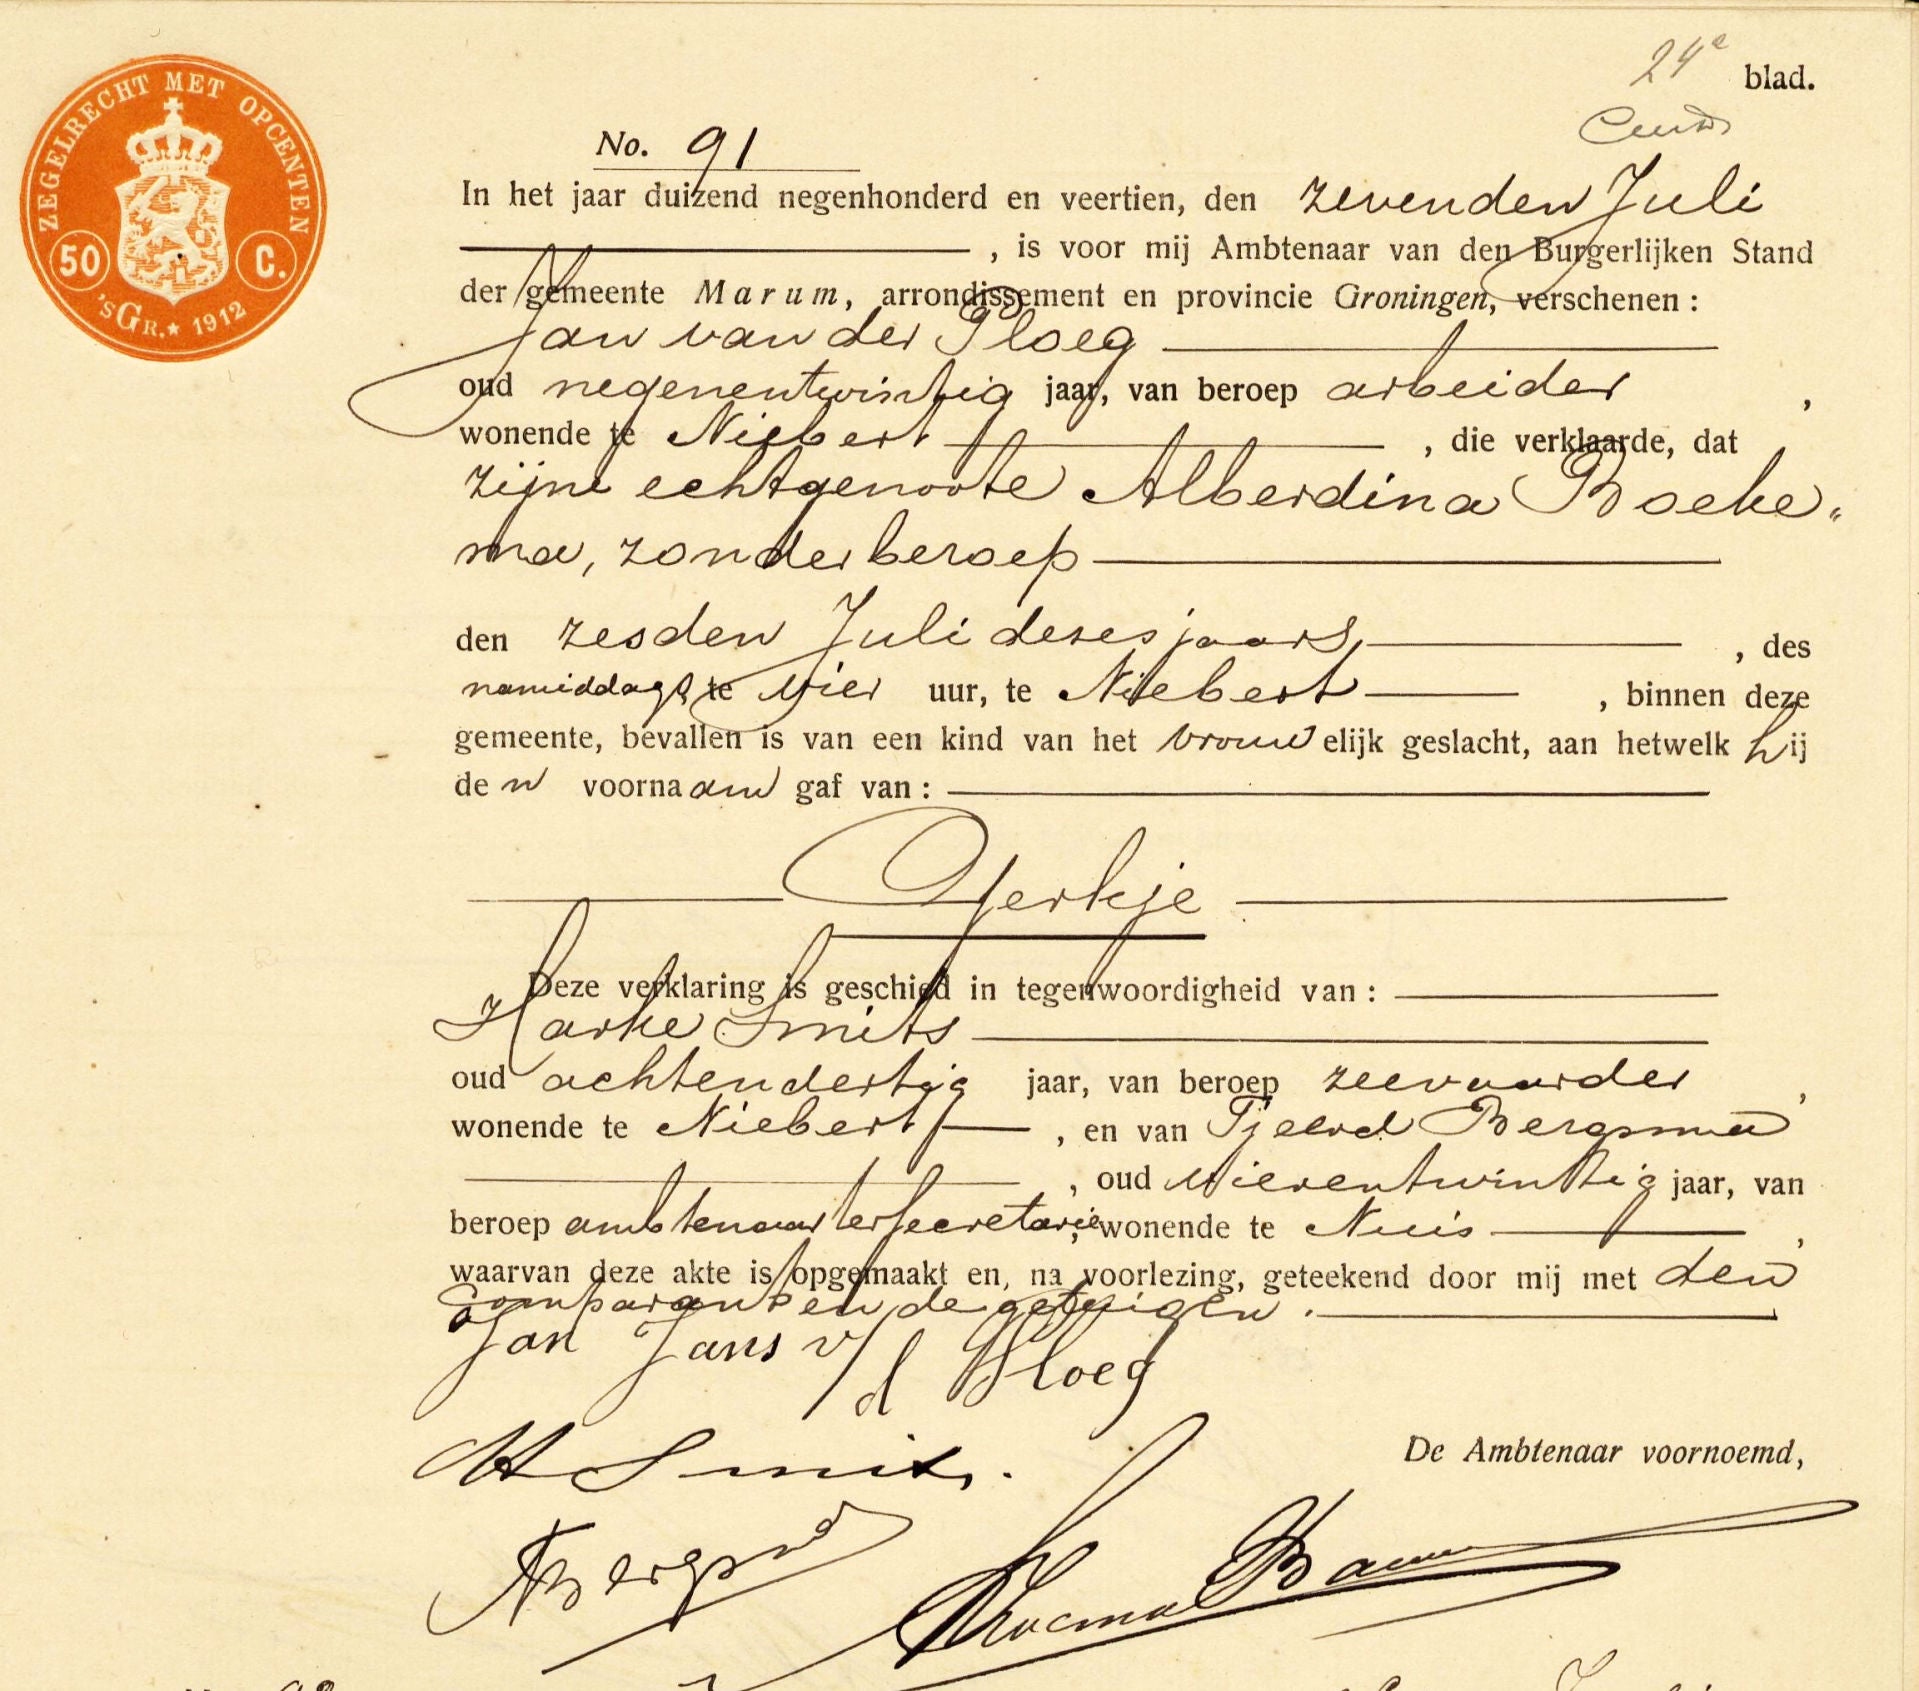 24e blad.
ZEGELRECHT MET OPCENTEN
50 C.
'S GR. ★ 1912
No. 91
In het jaar duizend negenhonderd en veertien, den zevenden Juli
, is voor mij Ambtenaar van den Burgerlijken Stand
der gemeente Marum, arrondissement en provincie Groningen, verschenen:
Jan van der Ploeg
oud negenentwintig jaar, van beroep arbeider,
wonende te Niebert, die verklaarde, dat
zijne echtgenoote Alberdina Boeke„
ma, zonder beroep
den zesden Juli dezes jaars, des
namiddags te vier uur, te Niebert, binnen deze
gemeente, bevallen is van een kind van het vrouwelijk geslacht, aan hetwelk hij
den voornaam gaf van:
Gerkje
Deze verklaring is geschied in tegenwoordigheid van:
Harke Smits
oud achtendertig jaar, van beroep zeevaarder,
wonende te Niebert, en van Tjeerd Bergsma
, oud vierentwintig jaar, van
beroep ambtenaar ter secretarie, wonende te Nuis,
waarvan deze akte is opgemaakt en, na voorlezing, geteekend door mij met den
comparant en de getuigen.
Jan Jans v/d Ploeg
H Smits.
De Ambtenaar voornoemd,
TBergsma